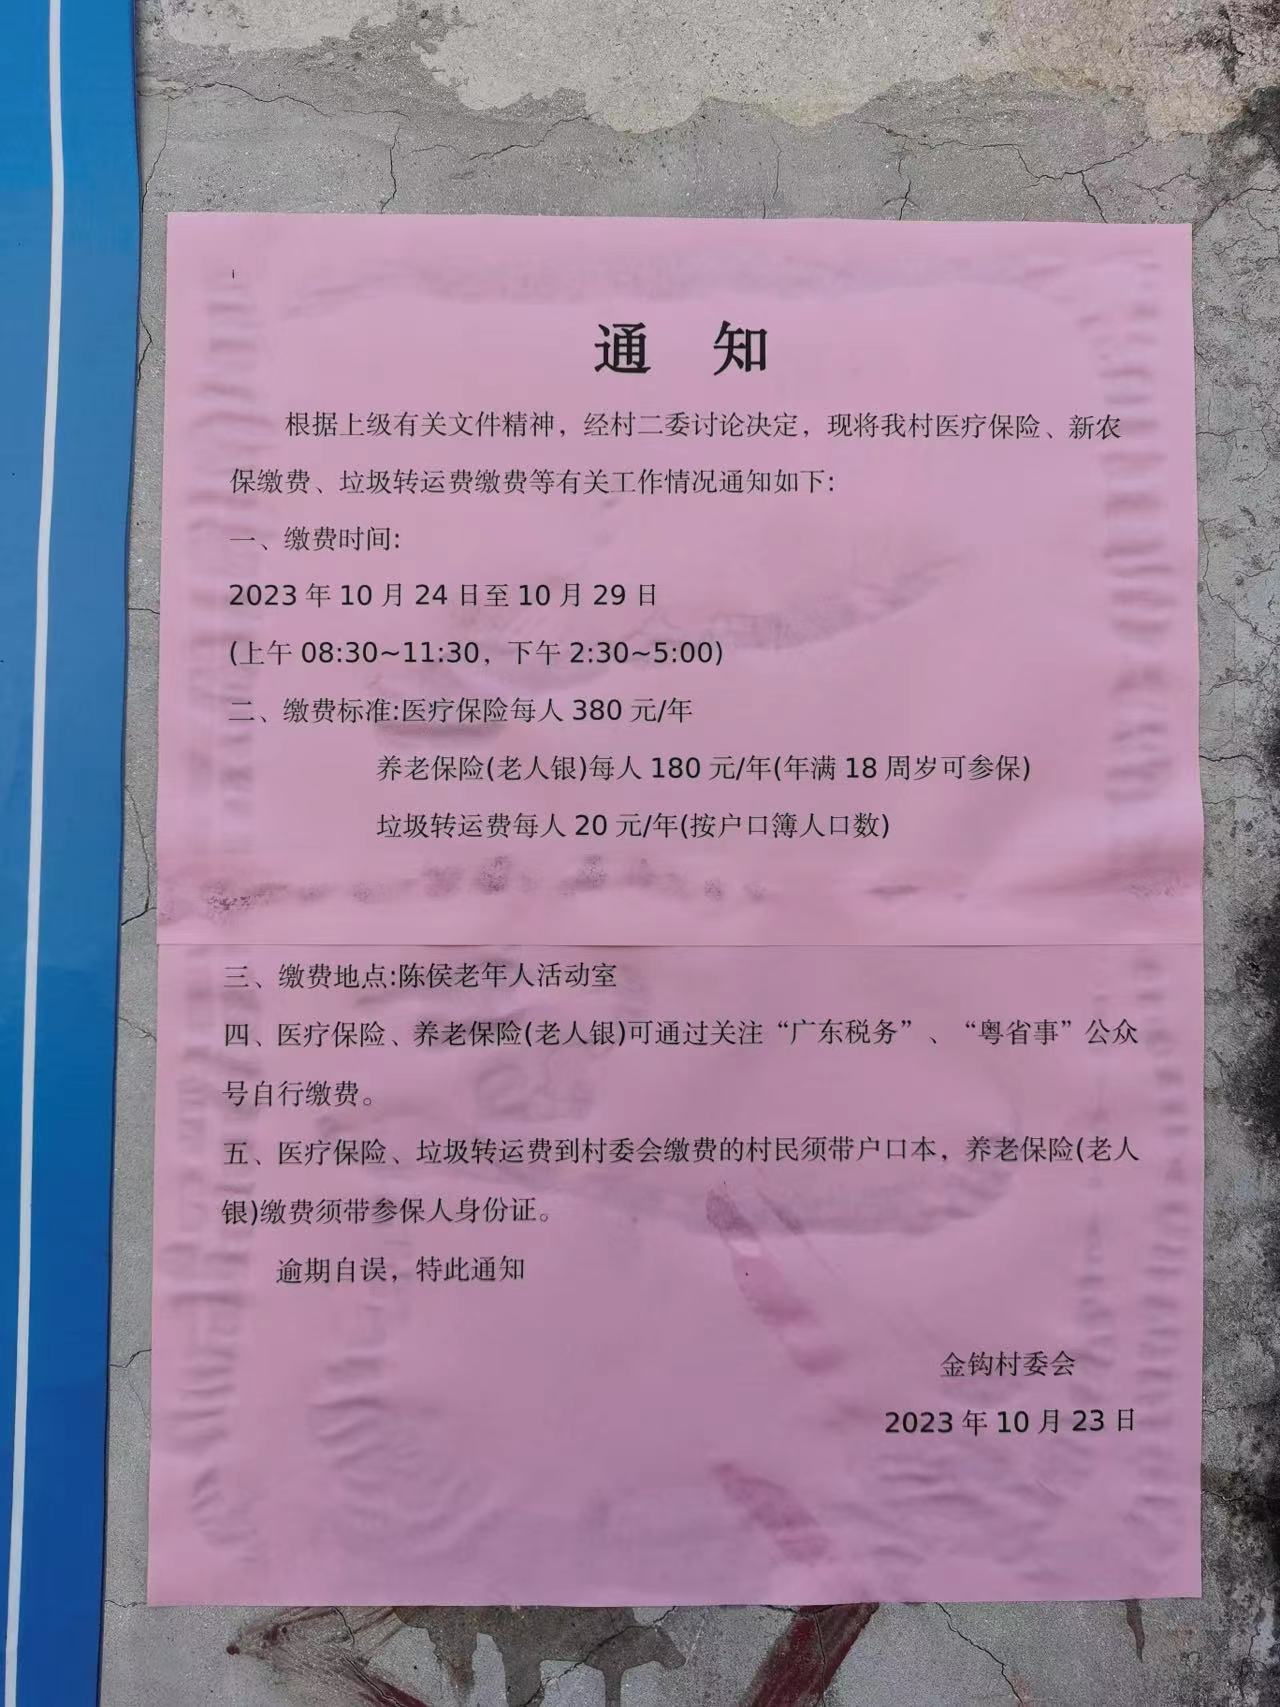 通 知
根据上级有关文件精神，经村二委讨论决定，现将我村医疗保险、新农
保缴费、垃圾转运费缴费等有关工作情况通知如下:
一、缴费时间:
2023 年 10 月 24 日至 10 月 29 日
(上午 08:30~11:30，下午 2:30~5:00)
二、缴费标准:医疗保险每人 380 元/年
养老保险(老人银)每人 180 元/年(年满 18 周岁可参保)
垃圾转运费每人 20 元/年(按户口簿人口数)
三、缴费地点:陈侯老年人活动室
四、医疗保险、养老保险(老人银)可通过关注“广东税务”、“粤省事”公众
号自行缴费。
五、医疗保险、垃圾转运费到村委会缴费的村民须带户口本，养老保险(老人
银)缴费须带参保人身份证。
逾期自误，特此通知
金钩村委会
2023 年 10 月 23 日